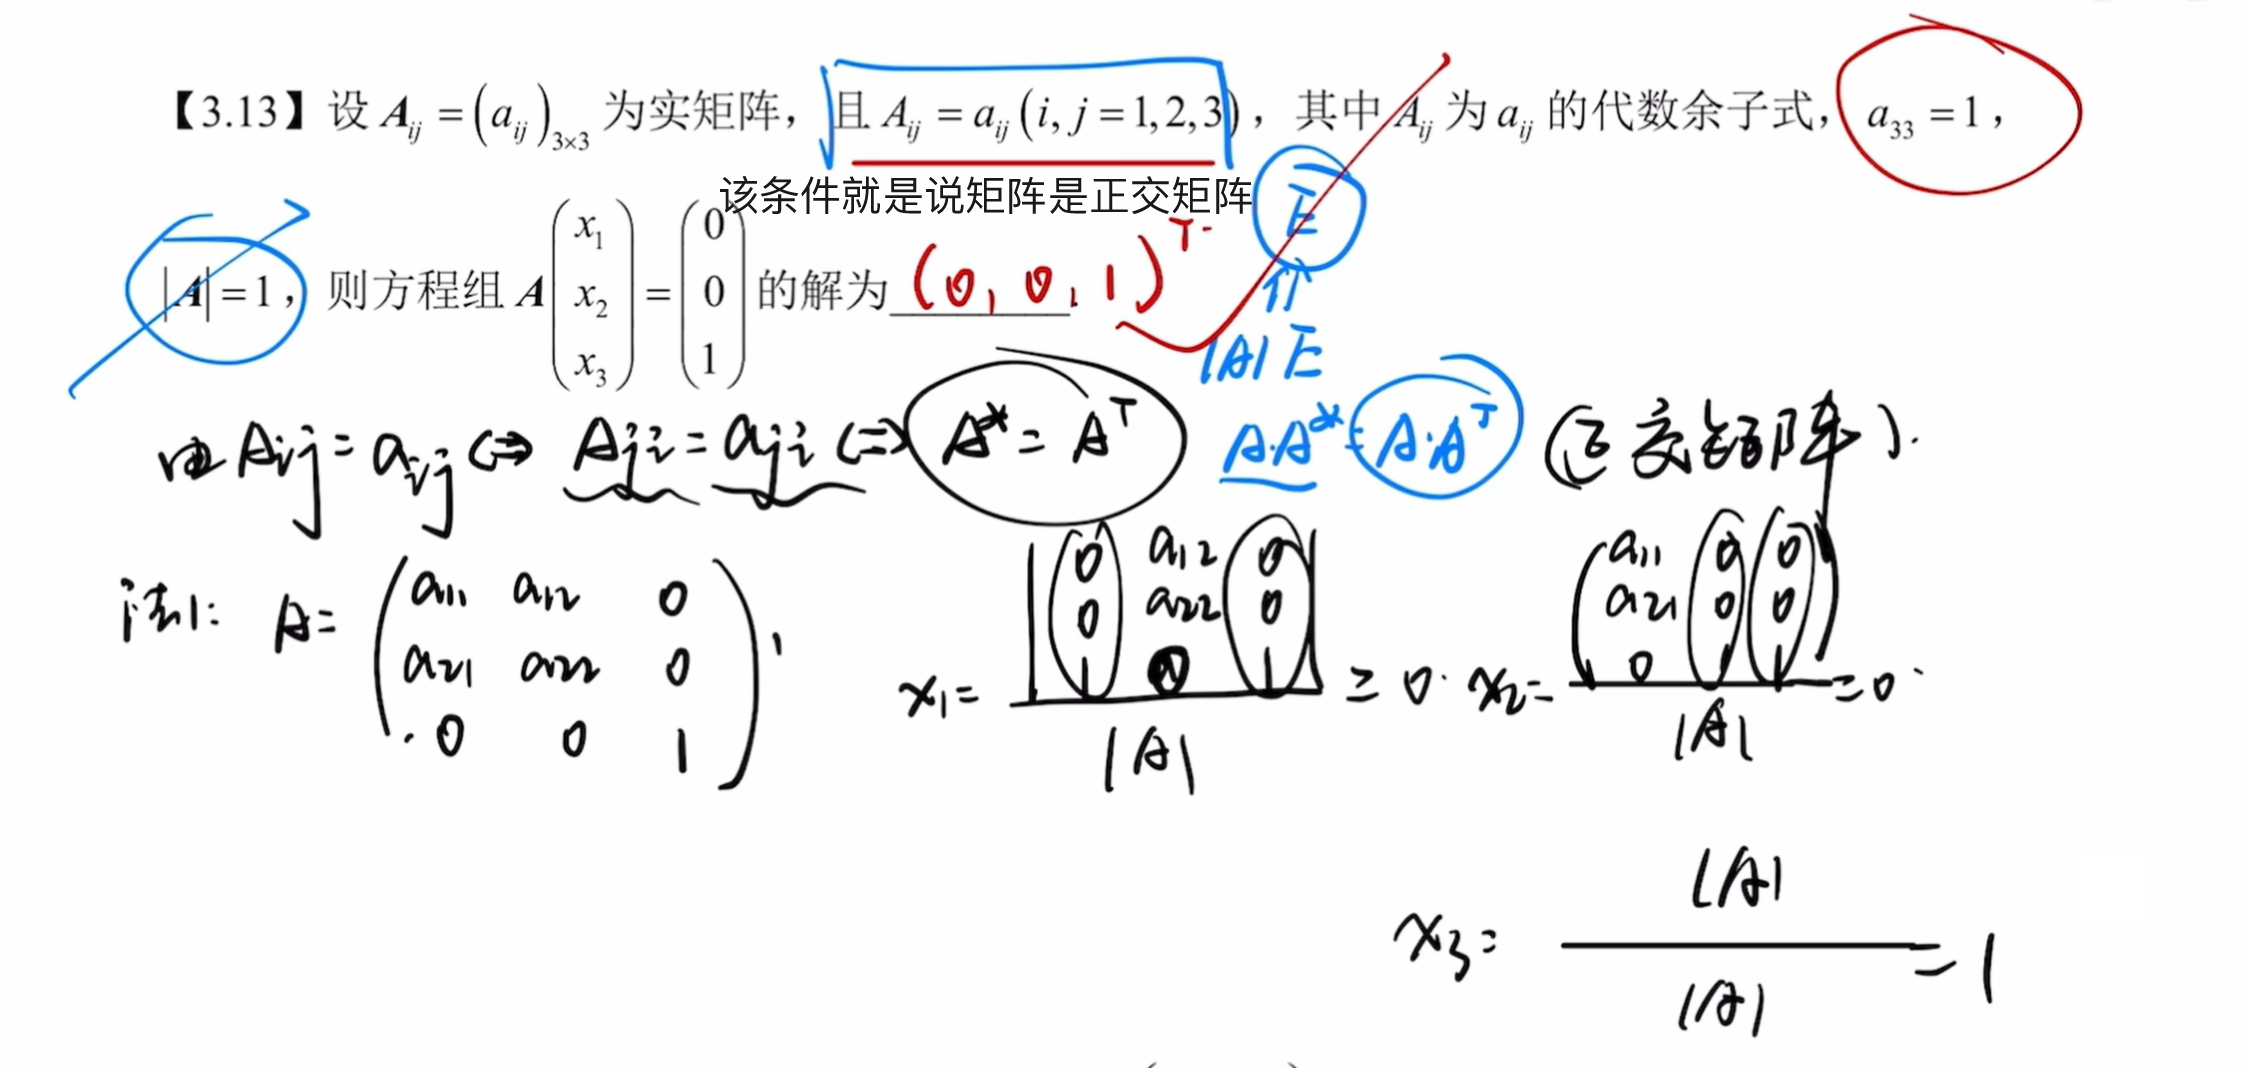 【3.13】设 A_{ij} = (a_{ij})_{3×3} 为实矩阵，且 A_{ij} = a_{ij} (i, j = 1, 2, 3)，其中 A_{ij} 为 a_{ij} 的代数余子式，a_{33} = 1，
该条件就是说矩阵是正交矩阵 E
|A| = 1，则方程组 A (x_1 x_2 x_3) = (0 0 1) 的解为 (0, 0, 1)^T.
|A|E
由 A_{ij} = a_{ij} ⇔ A_{ji} = a_{ji} ⇔ A^* = A^T A·A^* = A·A^T (正交矩阵).
法1: A = (a_{11} a_{12} 0
a_{21} a_{22} 0
0 0 1),
x_1 = |0 a_{12} 0
0 a_{22} 0
1 0 1| / |A| = 0. x_2 = (a_{11} 0 0
a_{21} 0 0
0 1 1) / |A| = 0.
x_3 = |A| / |A| = 1